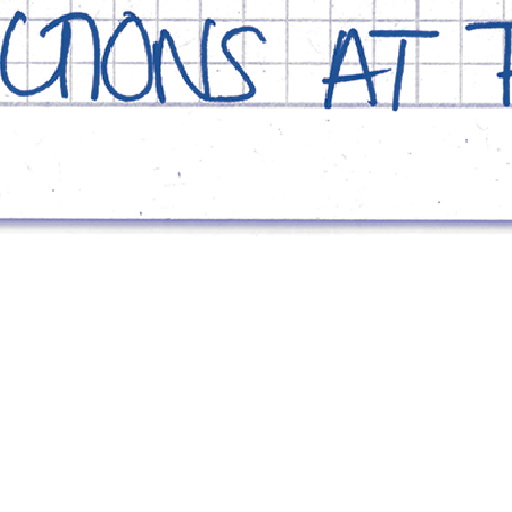 CTIONS AT